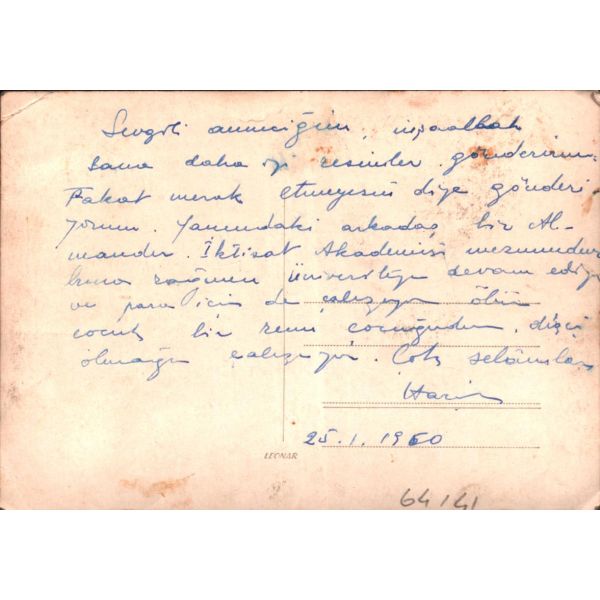 Sevgili anneciğim, inşaallah
sana daha iyi resimler gönderirim.
Fakat merak etmeyesin diye gönderi
yorum. Yanımdaki arkadaş bir Al-
mandır. İktisat Akademisi mezunudur
buna rağmen Üniversiteye devam ediyor
ve para için de çalışıyor. Öbür
çocuk bir çocuğudur, dişçi
olmağa çalışıyor. Çok selâmlar
25.1.1960
LEONAR
64141